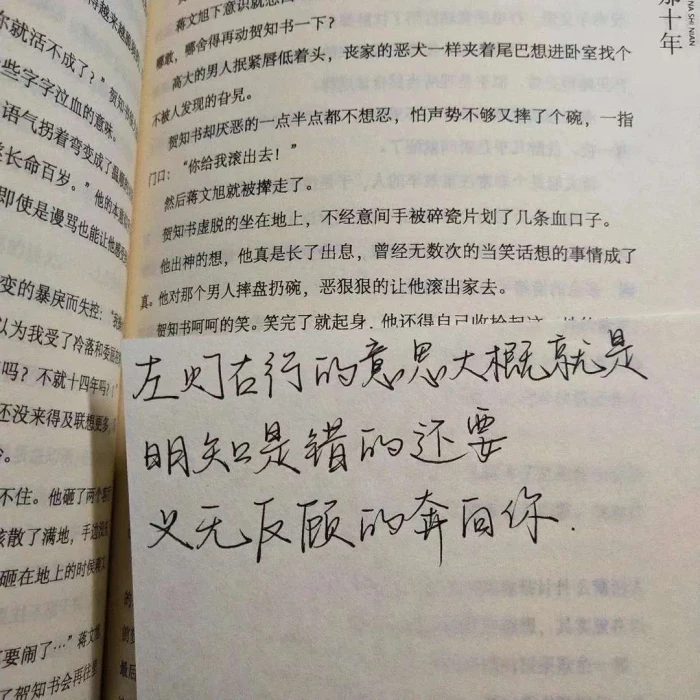 那十年
NA SHI NIAN
你就活不成了？”贺知书
些字字泣血的意味。
语气拐着弯变成了温
长命百岁。”他的本意
即使是谩骂也能让他
变的暴戾而失控：
以为我受了冷落和委屈
吗？不就十四年吗？
还没来得及联想更多，
不住。他砸了两个
散了满地，手边
砸在地上的时候蒋
要闹了…”蒋文
了贺知书会再往里
蒋文旭下意识就想
哪敢，哪舍得再动贺知书一下？
高大的男人抿紧唇低着头，丧家的恶犬一样夹着尾巴想进卧室找个
不被人发现的旮旯。
贺知书却厌恶的一点半点都不想忍，怕声势不够又摔了个碗，一指
门口：“你给我滚出去！”
然后蒋文旭就被撵走了。
贺知书虚脱的坐在地上，不经意间手被碎瓷片划了几条血口子。
他出神的想，他真是长了出息，曾经无数次的当笑话想的事情成了
真。他对那个男人摔盘扔碗，恶狠狠的让他滚出家去。
贺知书呵呵的笑。笑完了就起身，他还得自己收拾起这
左灯右行的意思大概就是
明知是错的还要
义无反顾的奔向你.